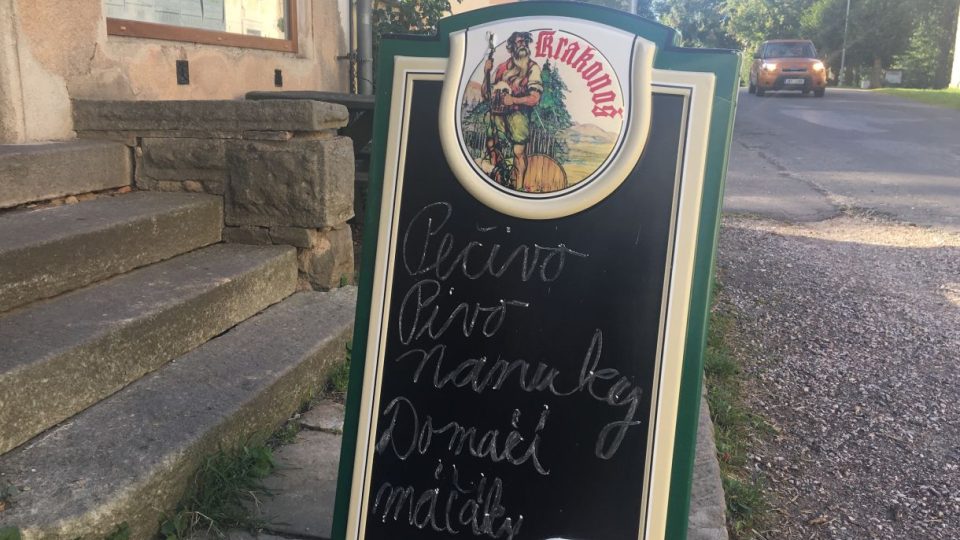 Krakonoš
Pečivo
Pivo
nanuky
Domačí
máčáky